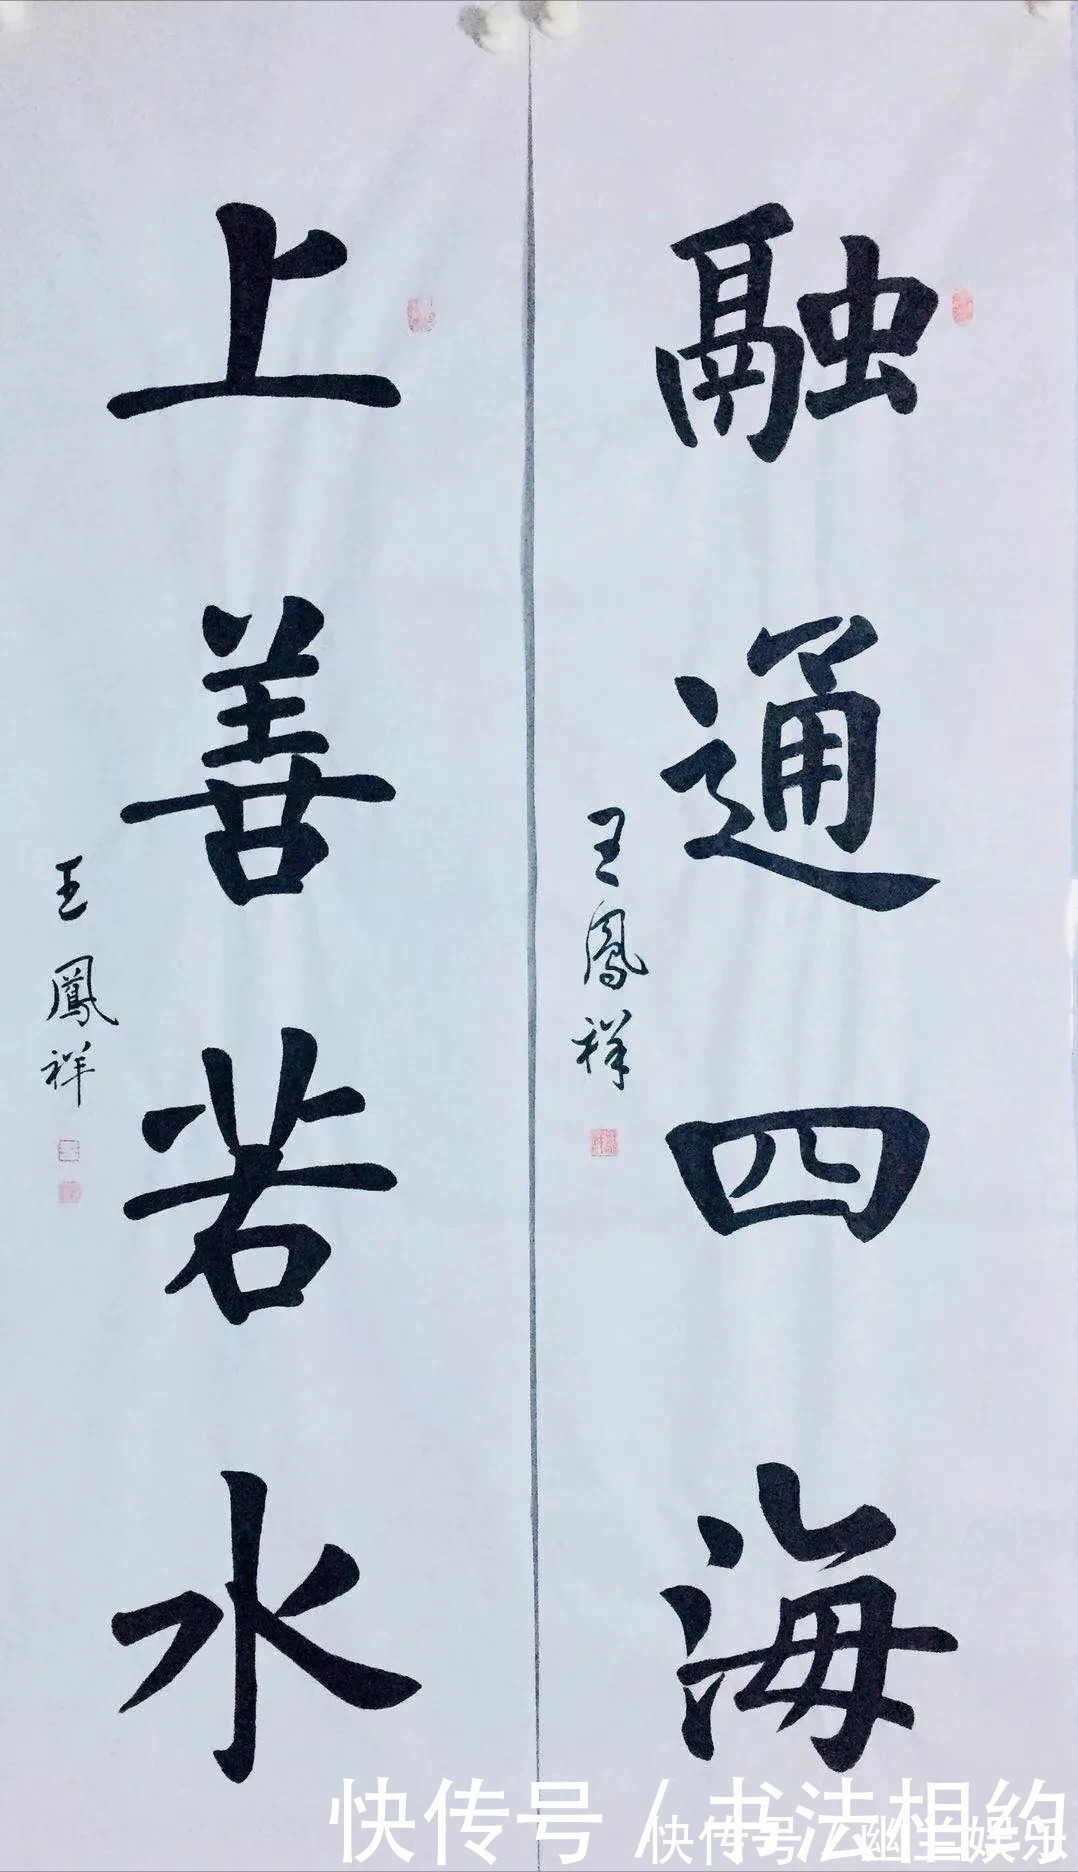 融通四海
王鳳祥
上善若水
王鳳祥
快传号 / 书法相约
快传号 / 幽兰娱乐